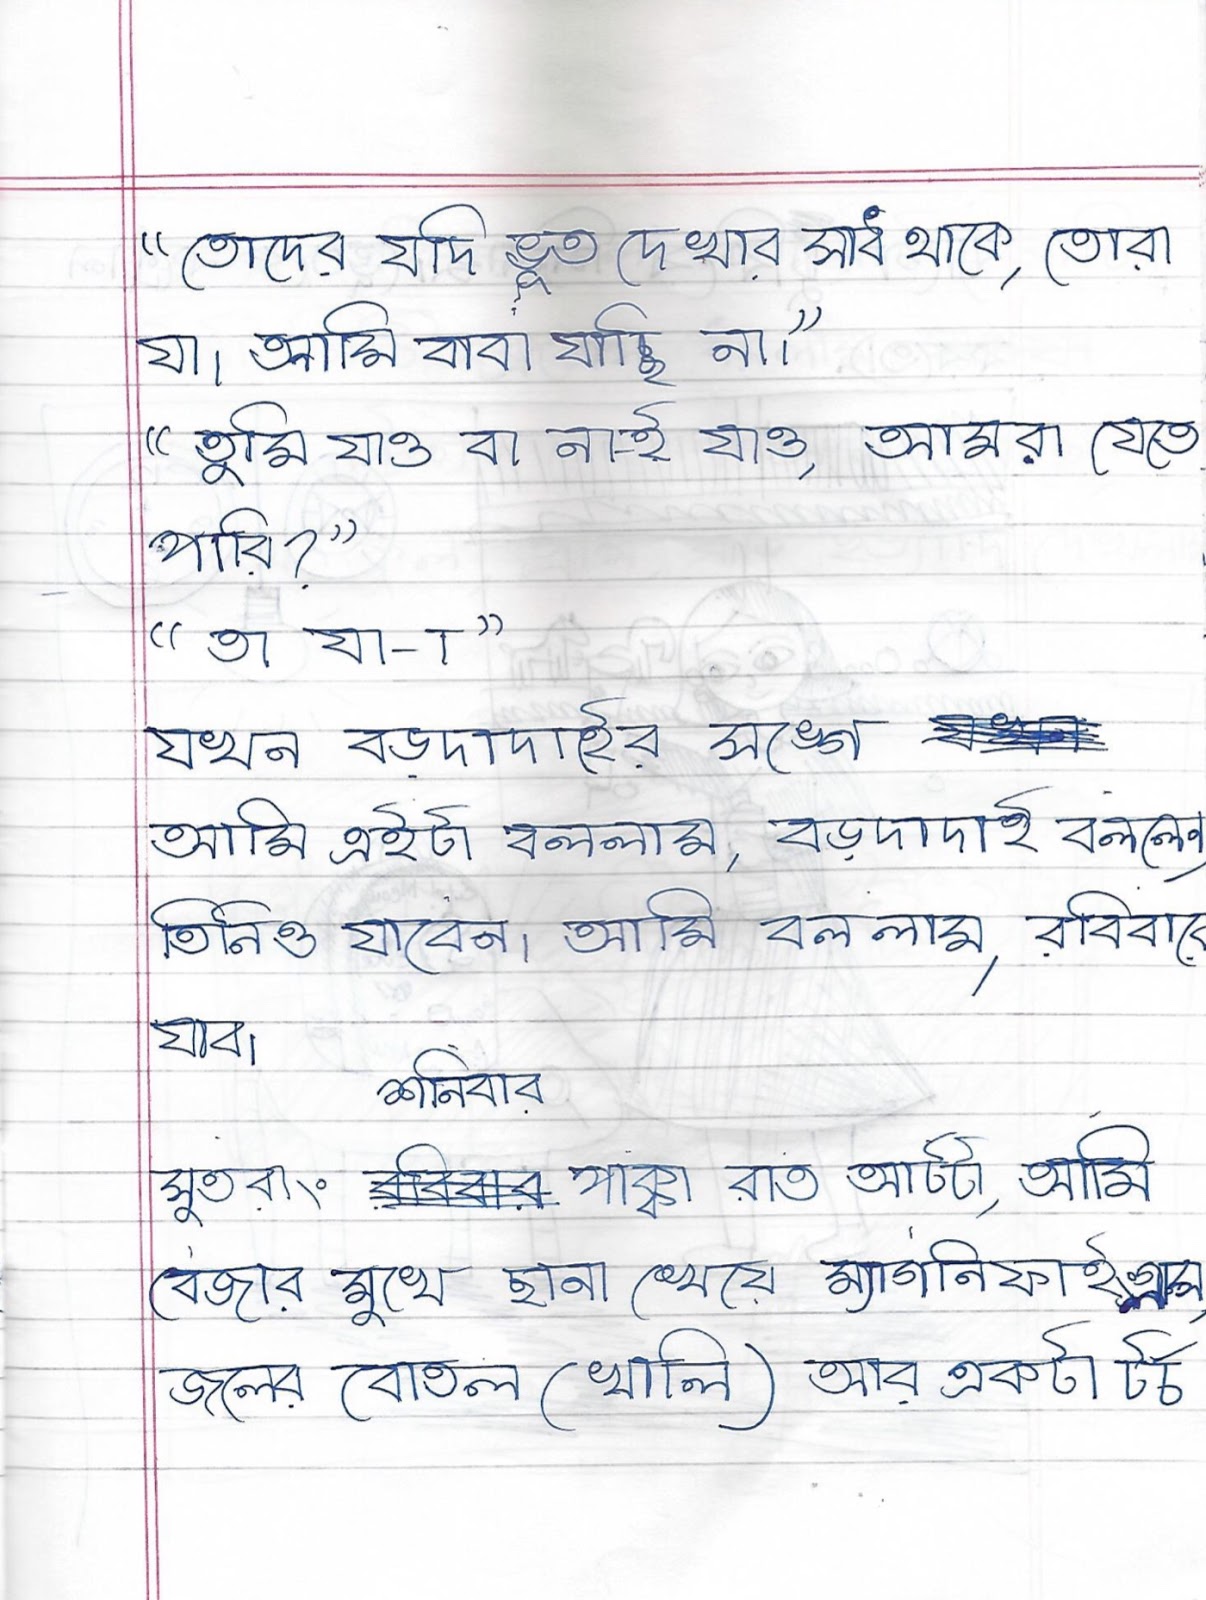 “তোদের যদি ভূত দেখার সাধ থাকে, তোরা
যা। আমি বাবা যাচ্ছি না।”
“তুমি যাও বা না-ই যাও, আমরা যেতে
পারি?”
“তা যা-া”
যখন বড়দাদাইর সঙ্গে
আমি এইটা বললাম, বড়দাদাই বললেন,
তিনিও যাবেন। আমি বললাম, রবিবারে
যাব।
শনিবার
সুতরাং রবিবার পাক্কা রাত আটটা, আমি
বেজার মুখে ছানা খেয়ে ম্যাগনিফাইং
জলের বোতল (খালি) আর একটা টর্চ